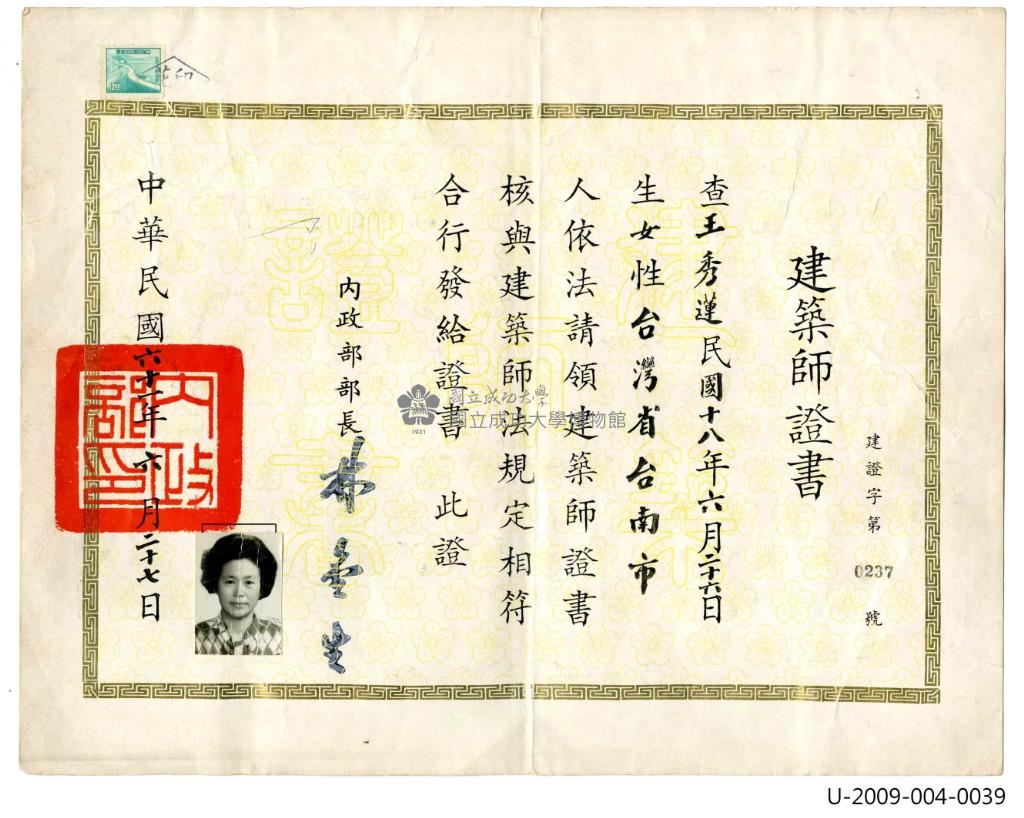 建築師證書
建證字第0237號
查王秀蓮民國十八年六月二十六日
生女性台灣省台南市
人依法請領建築師證書
核與建築師法規定相符
合行發給證書 此證
內政部部長 林金生
中華民國六十二年六月二十七日
內政部印
國立成功大學
國立成功大學博物館
1931
U-2009-004-0039